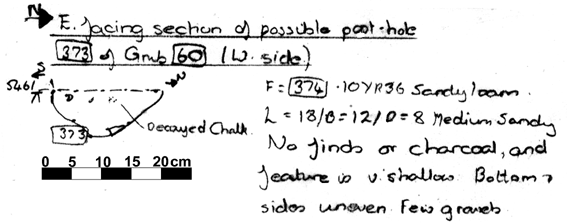 N E. facing section of possible post-hole
373 of Grub 60 (W. side)
S
N
5461
373
Decayed Chalk.
0 5 10 15 20cm
F = 374 . 10YR36 Sandy loam.
L = 13/B = 12/D = 8 Medium Sandy
No finds or charcoal, and
feature is v. shallow. Bottom +
sides uneven. Few gravels